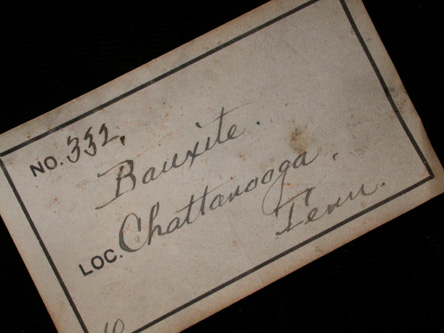 NO. 332.
Bauxite.
LOC. Chattanooga,
Tenn.